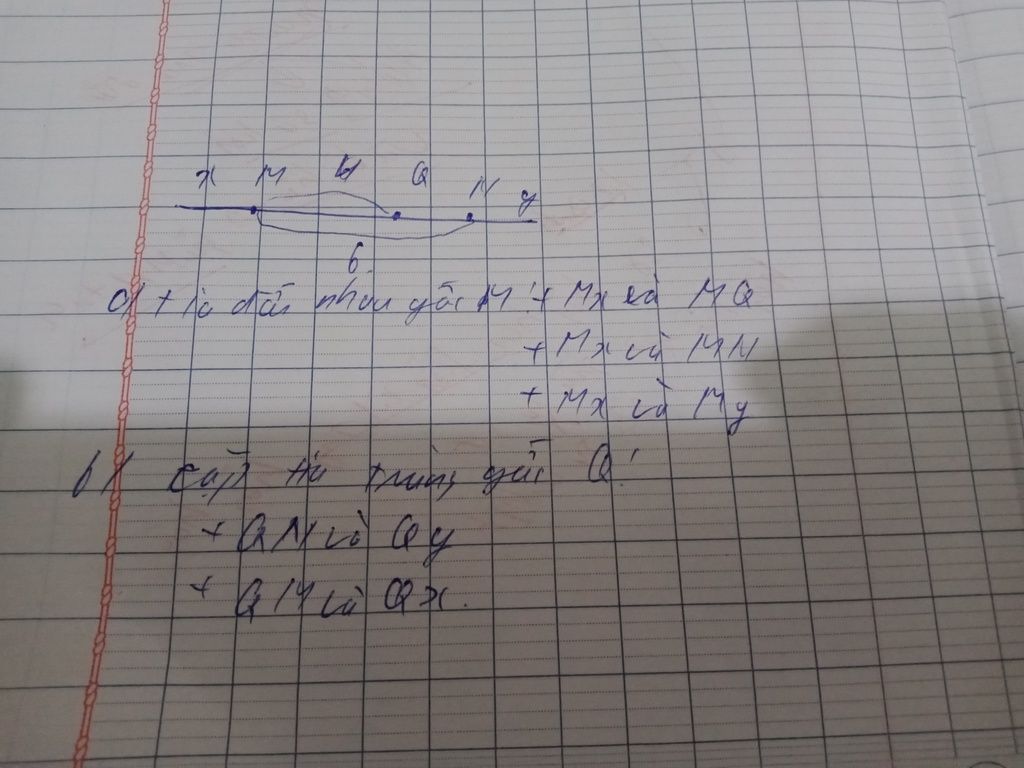 x M Q N y
6
a) + tia đối nhau gốc M: + Mx và MQ
+ Mx và MN
+ Mx và My
b) cặp tia trùng gốc Q:
+ QN và Qy
+ QM và Qx.